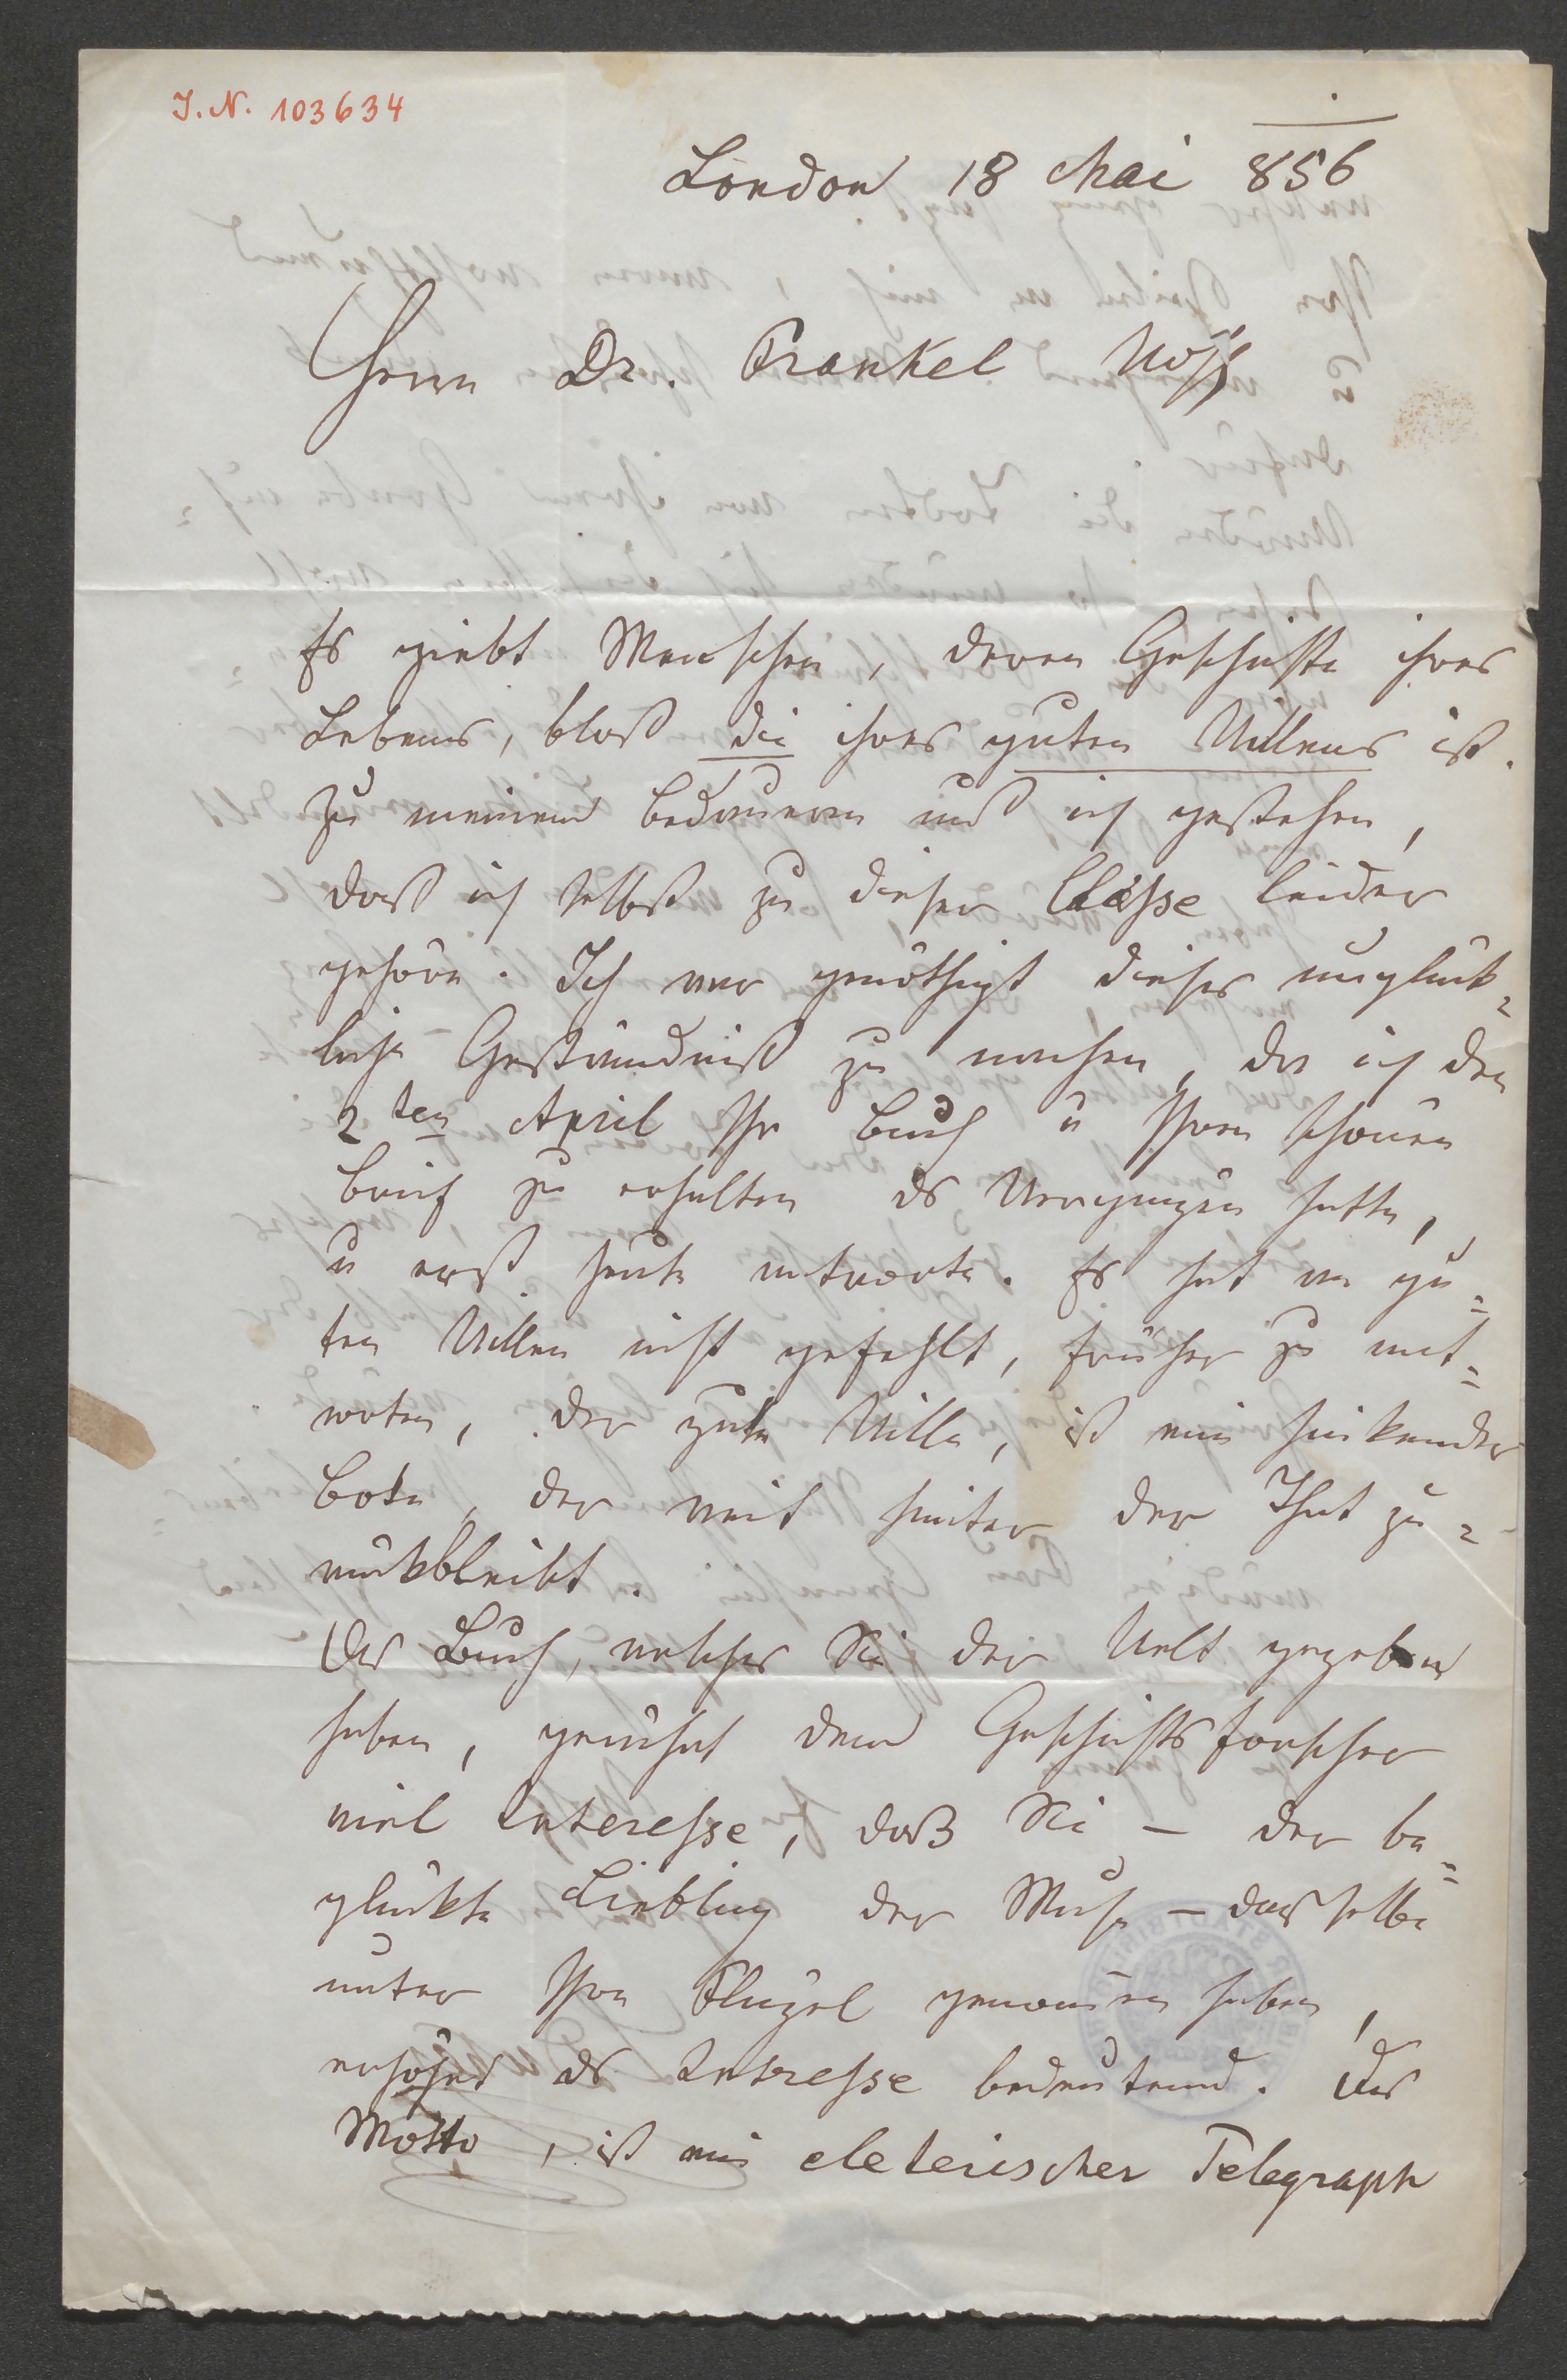 I. N. 103634
London 18 Mai 856
Herrn Dr. Frankel Wohl
Es giebt Menschen, deren Geschichte ihres
Lebens, bloß die ihres guten Willens ist.
Zu meinem bedauern muß ich gestehen,
daß ich selbst zu dieser Classe leider
gehöre. Ich war genöthigt dieses unglück=
liche Geständniß zu machen, da ich den
2ten April Ihr Buch u Ihren schönen
brief zu erhalten ds Vergnügen hatte,
u erst heute antworte. Es hat an gu=
ten Willen nicht gefehlt, früher zu ant=
worten, der gute Wille, ist ein hinkender
bote, der weit hinter der That zu=
rückbleibt.
Das Buch, welches Sie der Welt gegeben
haben, gewährt dem Geschichtsforscher
viel Interesse, daß Sie – der be=
glückte Liebling der Muse – dasselbe
unter Ihre Flügel genomen haben,
erhöhet ds Intresse bedeutend. Das
Motto, ist ein eleterischer Telegraph